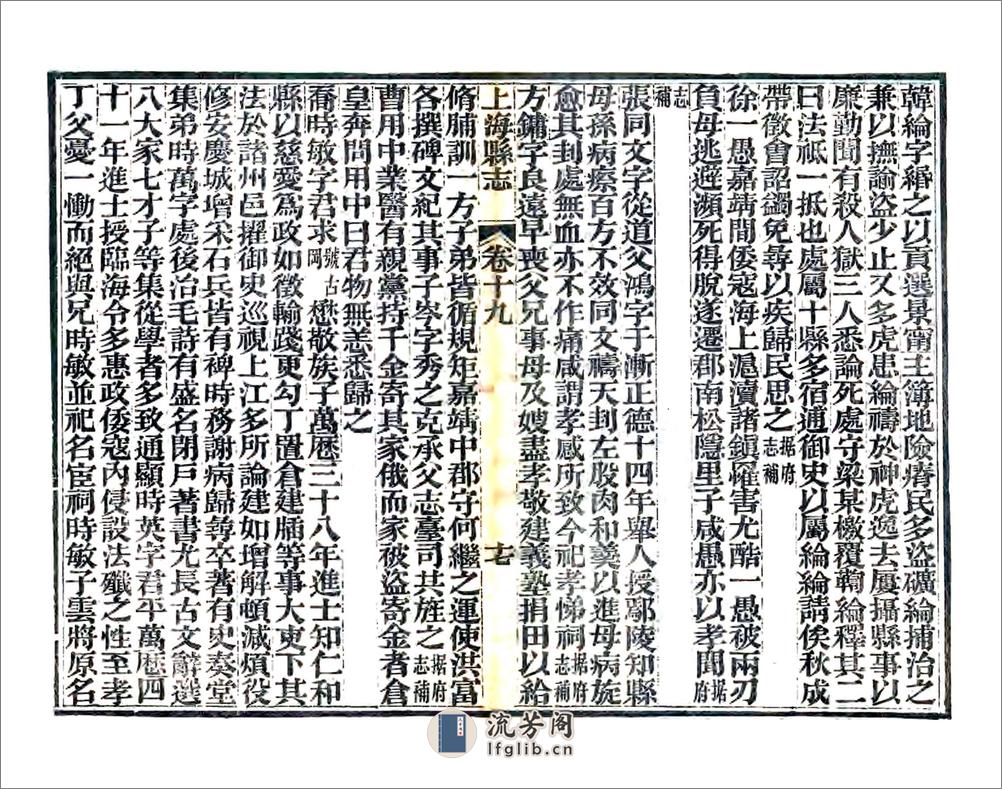 韓綸字緡之以貢選景甯主簿地險瘠民多盜礦綸捕治之
兼以撫諭盜少止又多虎患綸禱於神虎逸去屢攝縣事以
廉勤聞有殺人獄三人悉論死處守梁某檄覆鞫綸釋其二
曰法祗一抵也處屬十縣多宿逋御史以屬綸綸請俟秋成
帶徵會詔蠲免尋以疾歸民思之據府志補
徐一愚嘉靖間倭寇海上滬瀆諸鎮罹害尤酷一愚被兩刃
負母逃避瀕死得脫遂遷郡南松隱里子咸愚亦以孝聞據府
志補
張同文字從道父鴻字于漸正德十四年舉人授鄢陵知縣
母孫病瘵百方不效同文禱天刲左股肉和羹以進母病旋
愈其刲處無血亦不作痛咸謂孝感所致今祀孝悌祠據府志補
方鏞字良遠早喪父兄事母及嫂盡孝敬建義塾捐田以給
上海縣志 卷十九 十七
脩脯訓一方子弟皆循規矩嘉靖中郡守何繼之運使洪富
各撰碑文紀其事子岑字秀之克承父志臺司共旌之據府志補
曹用中業醫有親黨持千金寄其家俄而家被盜寄金者倉
皇奔問用中曰君物無恙悉歸之
喬時敏字君求號古岡懋敬族子萬曆三十八年進士知仁和
縣以慈愛爲政如徵輸踐更勾丁置倉建牐等事大吏下其
法於諸州邑擢御史巡視上江多所論建如增解頓減煩役
修安慶城增宋石兵皆有裨時務謝病歸尋卒著有史奏堂
集弟時萬字處後治毛詩有盛名閉戸著書尤長古文辭選
八大家七才子等集從學者多致通顯時英字君平萬曆四
十一年進士授臨海令多惠政倭寇內侵設法殲之性至孝
丁父憂一慟而絕與兄時敏並祀名宦祠時敏子雲將原名
流芳阁
lfglib.cn